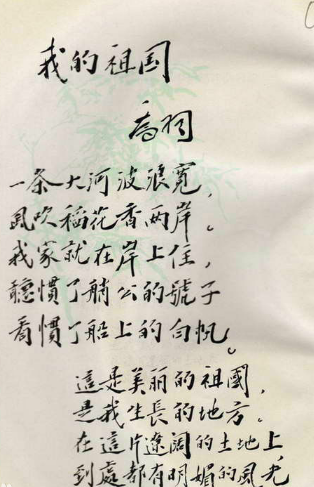 我的祖国
乔羽
一条大河波浪寬，
風吹稻花香两岸。
我家就在岸上住，
聽慣了艄公的號子
看慣了船上的白帆。
這是美丽的祖國，
是我生長的地方。
在這片遼阔的土地上，
到處都有明媚的風光